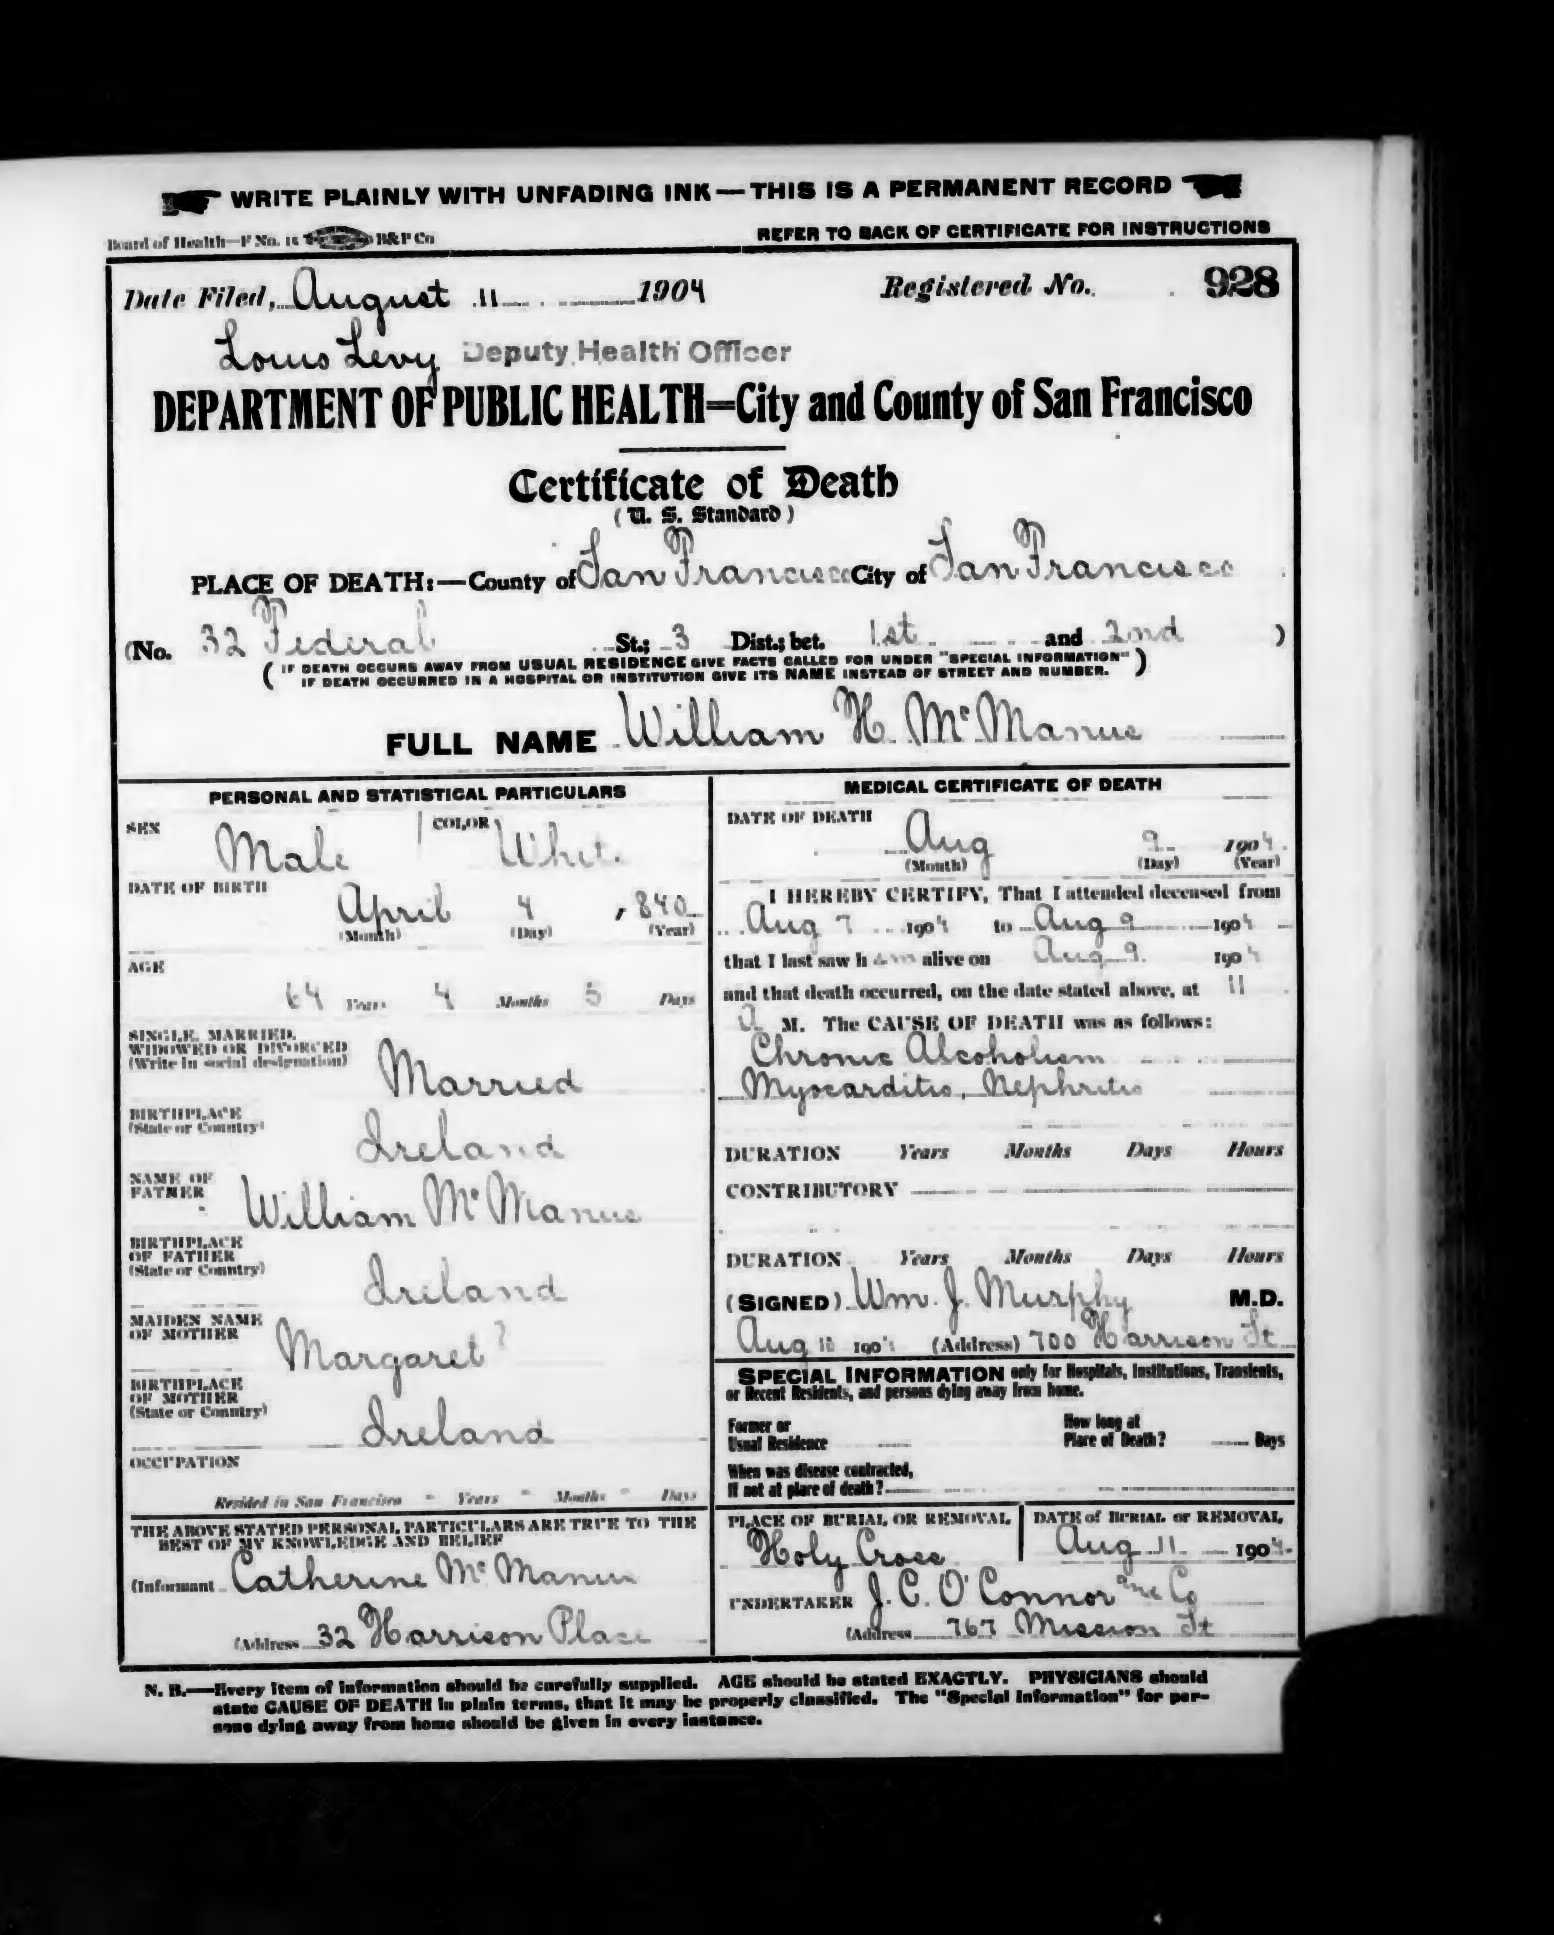 WRITE PLAINLY WITH UNFADING INK—THIS IS A PERMANENT RECORD
Board of Health—F No. 15 B&P Co
REFER TO BACK OF CERTIFICATE FOR INSTRUCTIONS
Date Filed, August 11 1904 Registered No. 928
Louis Levy Deputy Health Officer
DEPARTMENT OF PUBLIC HEALTH=City and County of San Francisco
Certificate of Death
(U. S. Standard)
PLACE OF DEATH:—County of San Francisco City of San Francisco
(No. 32 Federal St.; 3 Dist.; bet. 1st and 2nd )
( IF DEATH OCCURS AWAY FROM USUAL RESIDENCE GIVE FACTS CALLED FOR UNDER "SPECIAL INFORMATION" )
IF DEATH OCCURRED IN A HOSPITAL OR INSTITUTION GIVE ITS NAME INSTEAD OF STREET AND NUMBER.
FULL NAME William H. McManus
PERSONAL AND STATISTICAL PARTICULARS
SEX Male COLOR White
DATE OF BIRTH
April 4 , 840
(Month) (Day) (Year)
AGE
64 Years 4 Months 5 Days
SINGLE, MARRIED,
WIDOWED OR DIVORCED
(Write in social designation) Married
BIRTHPLACE
(State or Country) Ireland
NAME OF
FATHER William McManus
BIRTHPLACE
OF FATHER
(State or Country) Ireland
MAIDEN NAME
OF MOTHER Margaret ?
BIRTHPLACE
OF MOTHER
(State or Country) Ireland
OCCUPATION
Resided in San Francisco - Years - Months - Days
THE ABOVE STATED PERSONAL PARTICULARS ARE TRUE TO THE
BEST OF MY KNOWLEDGE AND BELIEF
(Informant Catherine McManus
(Address 32 Harrison Place
MEDICAL CERTIFICATE OF DEATH
DATE OF DEATH
Aug 9 1904
(Month) (Day) (Year)
I HEREBY CERTIFY, That I attended deceased from
Aug 7 1904 to Aug 9 1904
that I last saw him alive on Aug 9. 1904
and that death occurred, on the date stated above, at 11
A M. The CAUSE OF DEATH was as follows:
Chronic Alcoholism
Myocarditis, Nephritis
DURATION Years Months Days Hours
CONTRIBUTORY
DURATION Years Months Days Hours
(SIGNED) Wm. J. Murphy M.D.
Aug 10 1904 (Address) 700 Harrison St
SPECIAL INFORMATION only for Hospitals, Institutions, Transients,
or Recent Residents, and persons dying away from home.
Former or
Usual Residence
How long at
Place of Death? Days
When was disease contracted,
If not at place of death?
PLACE OF BURIAL OR REMOVAL
Holy Cross
DATE of BURIAL or REMOVAL
Aug 11 1904
UNDERTAKER J. C. O'Connor and Co
(Address 767 Mission St
N. B.—Every item of information should be carefully supplied. AGE should be stated EXACTLY. PHYSICIANS should
state CAUSE OF DEATH in plain terms, that it may be properly classified. The "Special Information" for per-
sons dying away from home should be given in every instance.